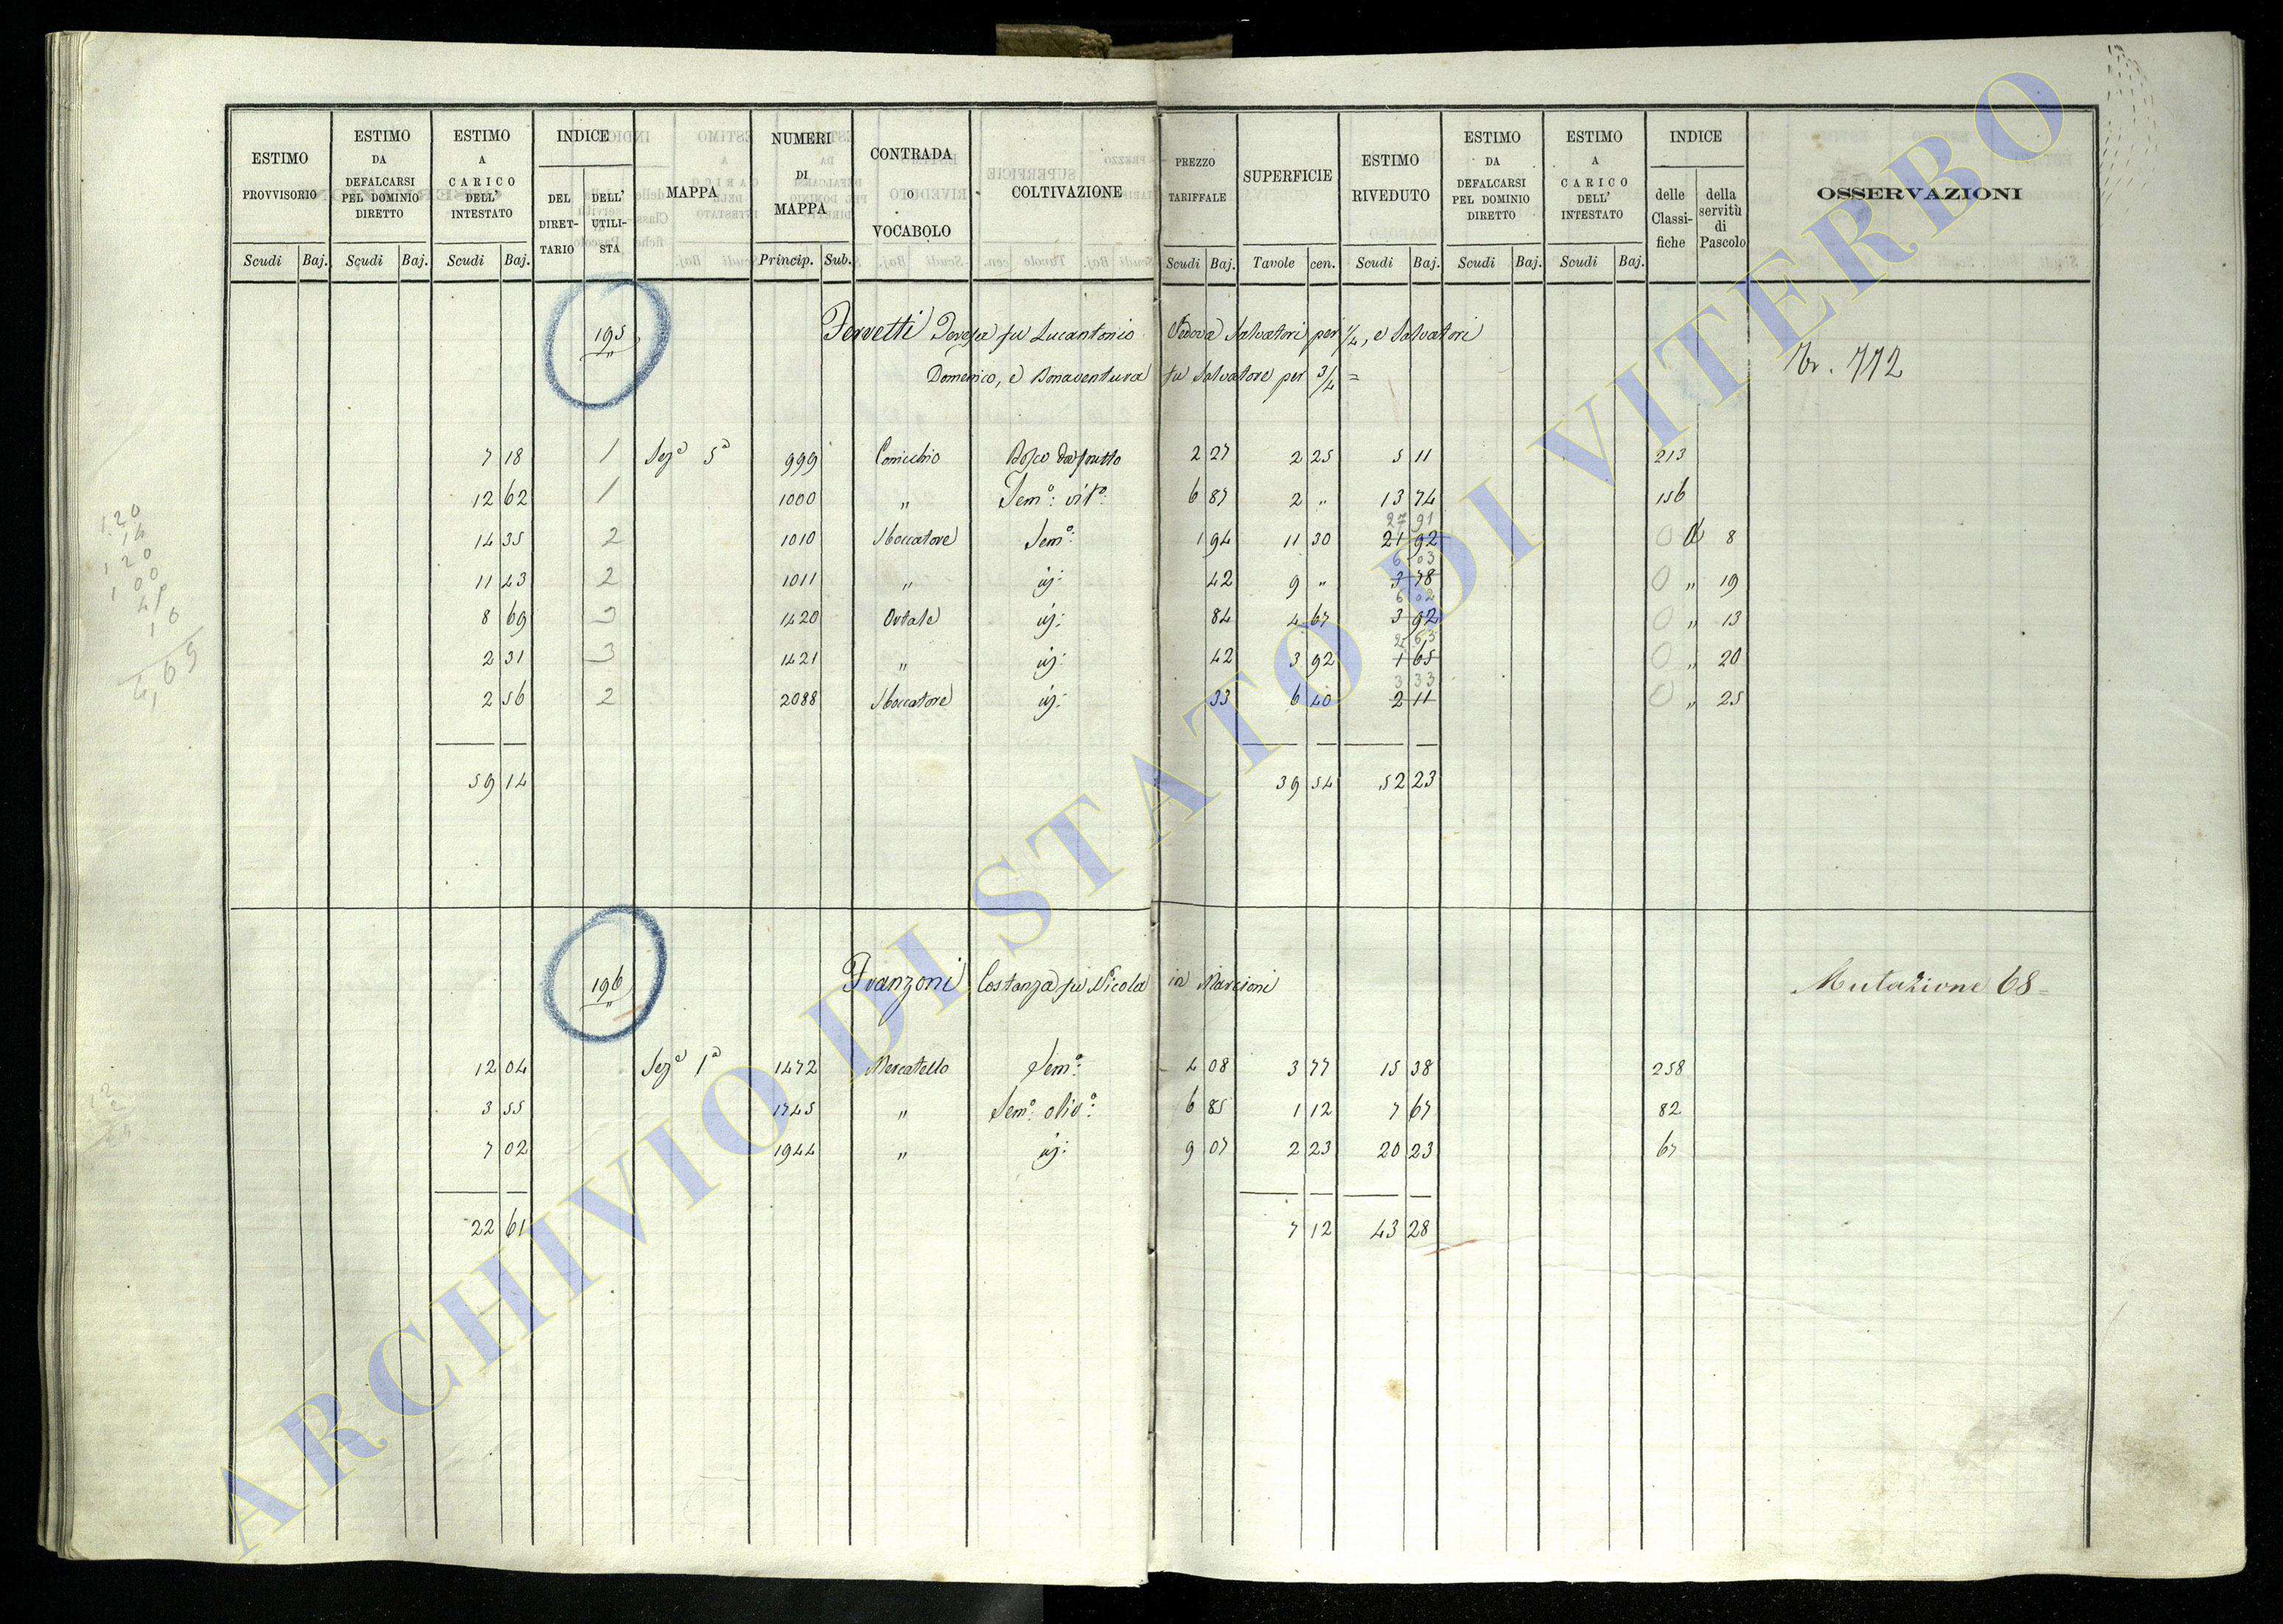 ESTIMO PROVVISORIO
ESTIMO DA DEFALCARSI PEL DOMINIO DIRETTO
ESTIMO A CARICO DELL' INTESTATO
INDICE
DEL DIRET- TARIO
DELL' UTILI- STA
MAPPA
NUMERI DI MAPPA
CONTRADA O VOCABOLO
COLTIVAZIONE
PREZZO TARIFFALE
SUPERFICIE
ESTIMO RIVEDUTO
ESTIMO DA DEFALCARSI PEL DOMINIO DIRETTO
ESTIMO A CARICO DELL' INTESTATO
INDICE
delle Classi- fiche
della servitù di Pascolo
OSSERVAZIONI
Scudi Baj. Scudi Baj. Scudi Baj. Princip. Sub. Scudi Baj. Tavole cen. Scudi Baj. Scudi Baj. Scudi Baj.
195 Ferretti Teresa fu Lucantonio Vedova Salvatori per 1/4, e Salvatori
Domenico, e Bonaventura fu Salvatore per 3/4 =
772
7 18 1 Sez.a 5a 999 Bosco da frutto 2 27 2 25 5 11 213
12 62 1 1000 " Sem.o: vit.o: 6 87 2 " 13 74 156
27 91
14 35 2 1010 Sboccatore Sem.o: 1 94 11 30 21 92 0 8
6 03
11 43 2 1011 " id: 42 9 " 3 78 0 " 19
6 02
8 69 3 1420 Ortale id: 84 4 67 3 92 0 " 13
2 63
2 31 3 1421 " id: 42 3 92 1 65 0 " 20
3 33
2 56 2 2088 Sboccatore id: 33 6 40 2 11 0 " 25
59 14 39 54 52 23
196 Franzoni Costanza fu Nicola in Marcioni Mutazione 68 =
12 04 Sez.a 1a 1472 Mercatello Sem.o: 4 08 3 77 15 38 258
3 55 1745 " Sem.o: oliv.o: 6 85 1 12 7 67 82
7 02 1944 " id: 9 07 2 23 20 23 67
22 61 7 12 43 28
ARCHIVIO DI STATO DI VITERBO